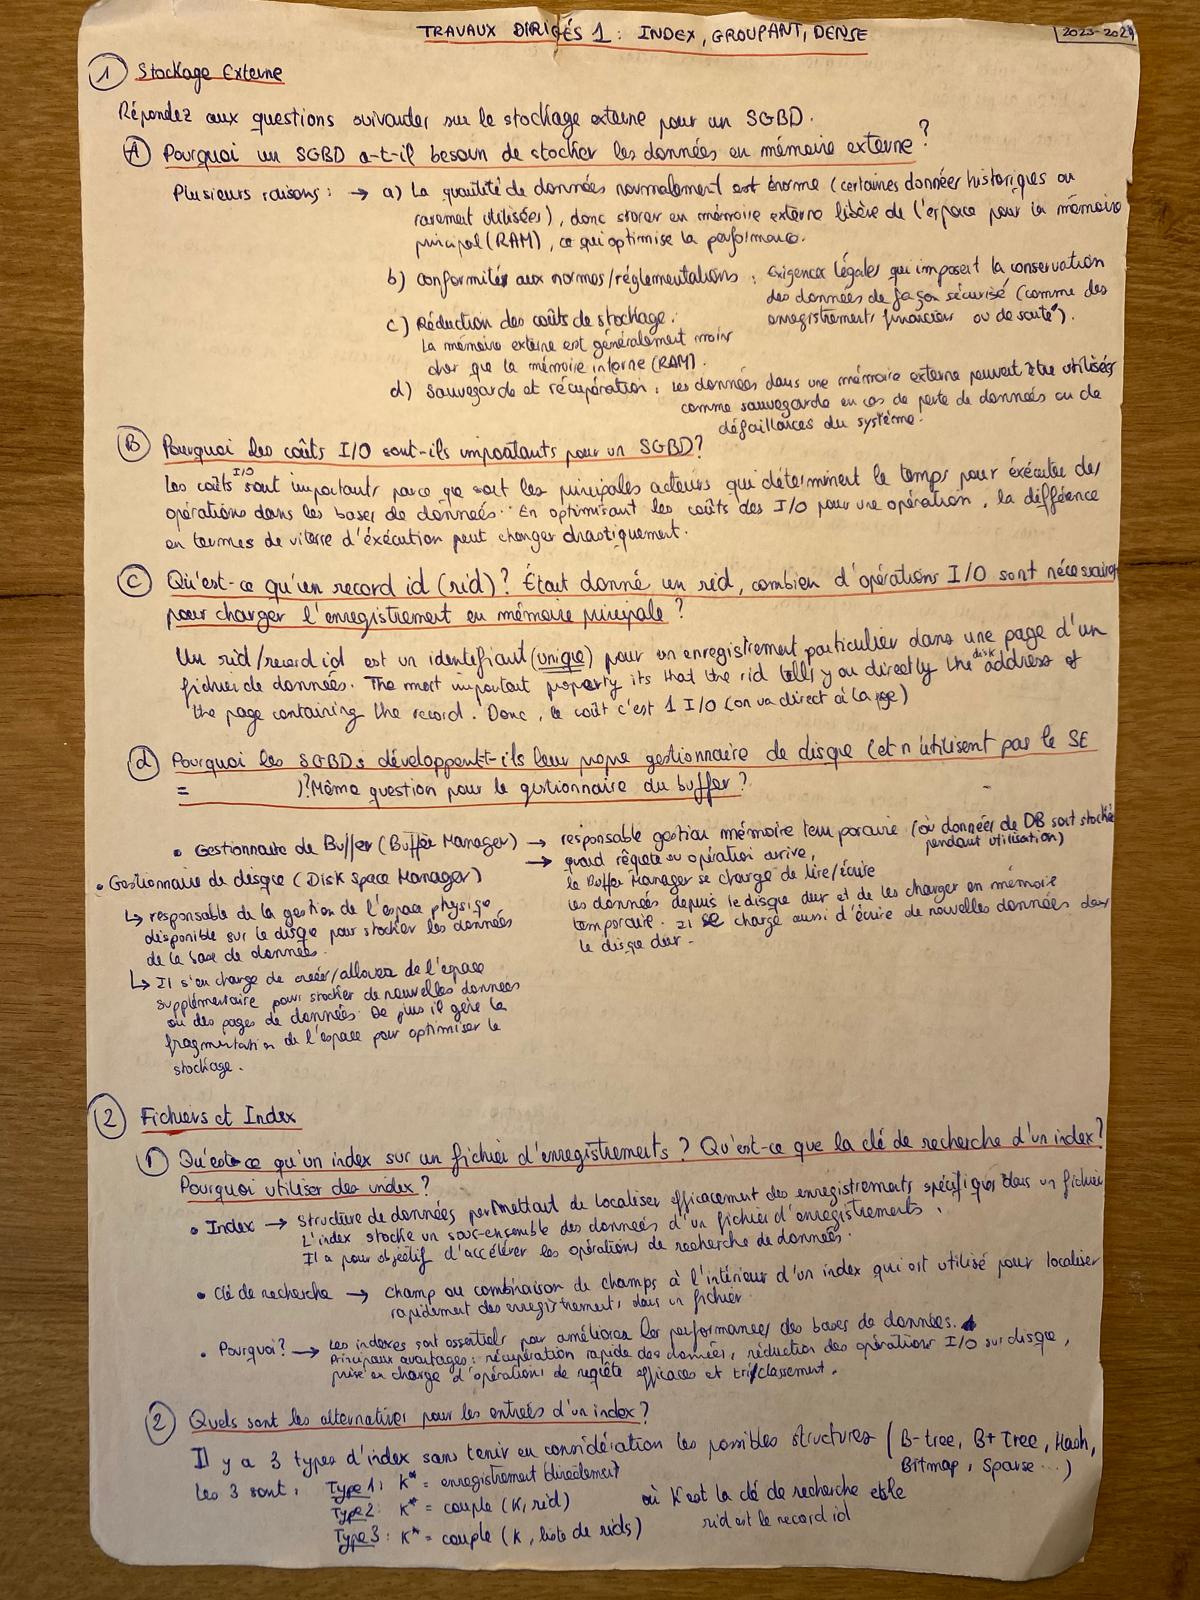 TRAVAUX DIRIGÉS 1 : INDEX, GROUPANT, DENSE
2023-2024
1 Stockage Externe
Répondez aux questions suivantes sur le stockage externe pour un SGBD.
A Pourquoi un SGBD a-t-il besoin de stocker les données en mémoire externe ?
Plusieurs raisons : → a) La quantité de données normalement est énorme (certaines données historiques ou
rarement utilisées), donc storer en mémoire externe libère de l'espace pour la mémoire
principal (RAM), ce qui optimise la performance.
b) Conformités aux normes/réglementations : Exigences légales qui imposent la conservation
des données de façon sécurisé (comme des
enregistrements financiers ou de santé).
c) Réduction des coûts de stockage :
La mémoire externe est généralement moins
cher que la mémoire interne (RAM).
d) Sauvegarde et récupération : les données dans une mémoire externe peuvent être utilisés
comme sauvegarde en cas de perte de données ou de
défaillances du système.
B Pourquoi les coûts I/O sont-ils importants pour un SGBD?
Les coûts I/O sont importants parce que sont les principales acteurs qui déterminent le temps pour exécuter des
opérations dans les bases de données. En optimisant les coûts des I/O pour une opération, la différence
en termes de vitesse d'exécution peut changer drastiquement.
C Qu'est-ce qu'un record id (rid)? Étant donné un rid, combien d'opérations I/O sont nécessaires
pour charger l'enregistrement en mémoire principale ?
Un rid/record id est un identifiant (unique) pour un enregistrement particulier dans une page d'un
fichier de données. The most important property its that the rid tells you directly the disk address of
the page containing the record. Donc, le coût c'est 1 I/O (on va direct à la page)
d Pourquoi les SGBDs développent-t-ils leur propre gestionnaire de disque (et n'utilisent pas le SE
= )? Même question pour le gestionnaire du buffer ?
• Gestionnaire de Buffer (Buffer Manager) → responsable gestion mémoire temporaire (où données de DB sont stockés
pendant utilisation)
→ quand rêquete ou opération arrive,
le Buffer Manager se charge de lire/écrire
les données depuis le disque dur et de les charger en mémoire
temporaire. Il se charge aussi d'écrire de nouvelles données dans
le disque dur.
• Gestionnaire de disque (Disk Space Manager)
↳ responsable de la gestion de l'espace physique
disponible sur le disque pour stocker les données
de la base de données.
↳ Il s'en charge de créer/allouer de l'espace
supplémentaire pour stocker de nouvelles données
ou des pages de données. De plus il gère la
fragmentation de l'espace pour optimiser le
stockage.
2 Fichiers et Index
1 Qu'est-ce qu'un index sur un fichier d'enregistrements ? Qu'est-ce que la clé de recherche d'un index?
Pourquoi utiliser des index ?
• Index → Structure de données permettant de localiser efficacement des enregistrements spécifiques dans un fichier
L'index stocke un sous-ensemble des données d'un fichier d'enregistrements.
Il a pour objectif d'accélérer les opérations de recherche de données.
• Clé de recherche → champ ou combinaison de champs à l'intérieur d'un index qui est utilisé pour localiser
rapidement des enregistrements dans un fichier
• Pourquoi? → Les indexes sont essentiels par améliorer les performances des bases de données.
Principaux avantages : récupération rapide des données, réduction des opérations I/O sur disque,
prise en charge d'opérations de requête efficaces et tri/classement.
2 Quels sont les alternatives pour les entrées d'un index?
Il y a 3 types d'index sans tenir en considération les possibles structures (B-tree, B+ Tree, Hash,
Bitmap, Sparse ...)
Les 3 sont : Type 1 : K* = enregistrement (directement
Type 2 : K* = couple (K, rid)
où K est la clé de recherche et le
rid est le record id
Type 3 : K* = couple (K, liste de rids)